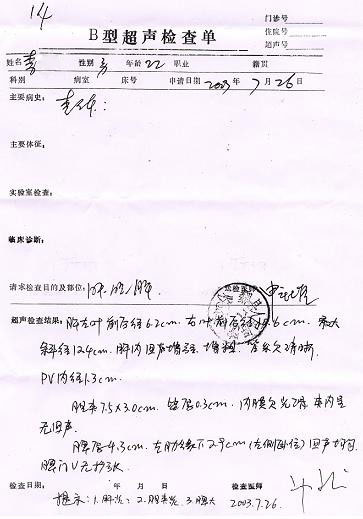 14
门诊号
B型超声检查单
住院号
超声号
姓名 性别 男 年龄 22 职业 籍贯
科别 病室 床号 申请日期 2003年7月26日
主要病史:
主要体征:
实验室检查:
临床诊断:
请求检查目的及部位: 肝 胆 脾 送检医师
超声检查结果: 肝左叶前后径6.2cm. 右叶前后径 .6cm. 最大
斜径12.4cm. 肝内回声增粗. 增强. 管系欠清晰.
PV内径1.3cm.
胆囊7.5×3.0cm. 壁厚0.3cm. 内膜欠光滑 囊内呈
无回声.
脾厚4.3cm. 左肋缘下2.9cm (左侧卧位) 回声均匀
脾门V无扩张
检查日期: 年 月 日 检查医师
提示: 1. 2. 胆囊炎 3. 脾大 2003.7.26.